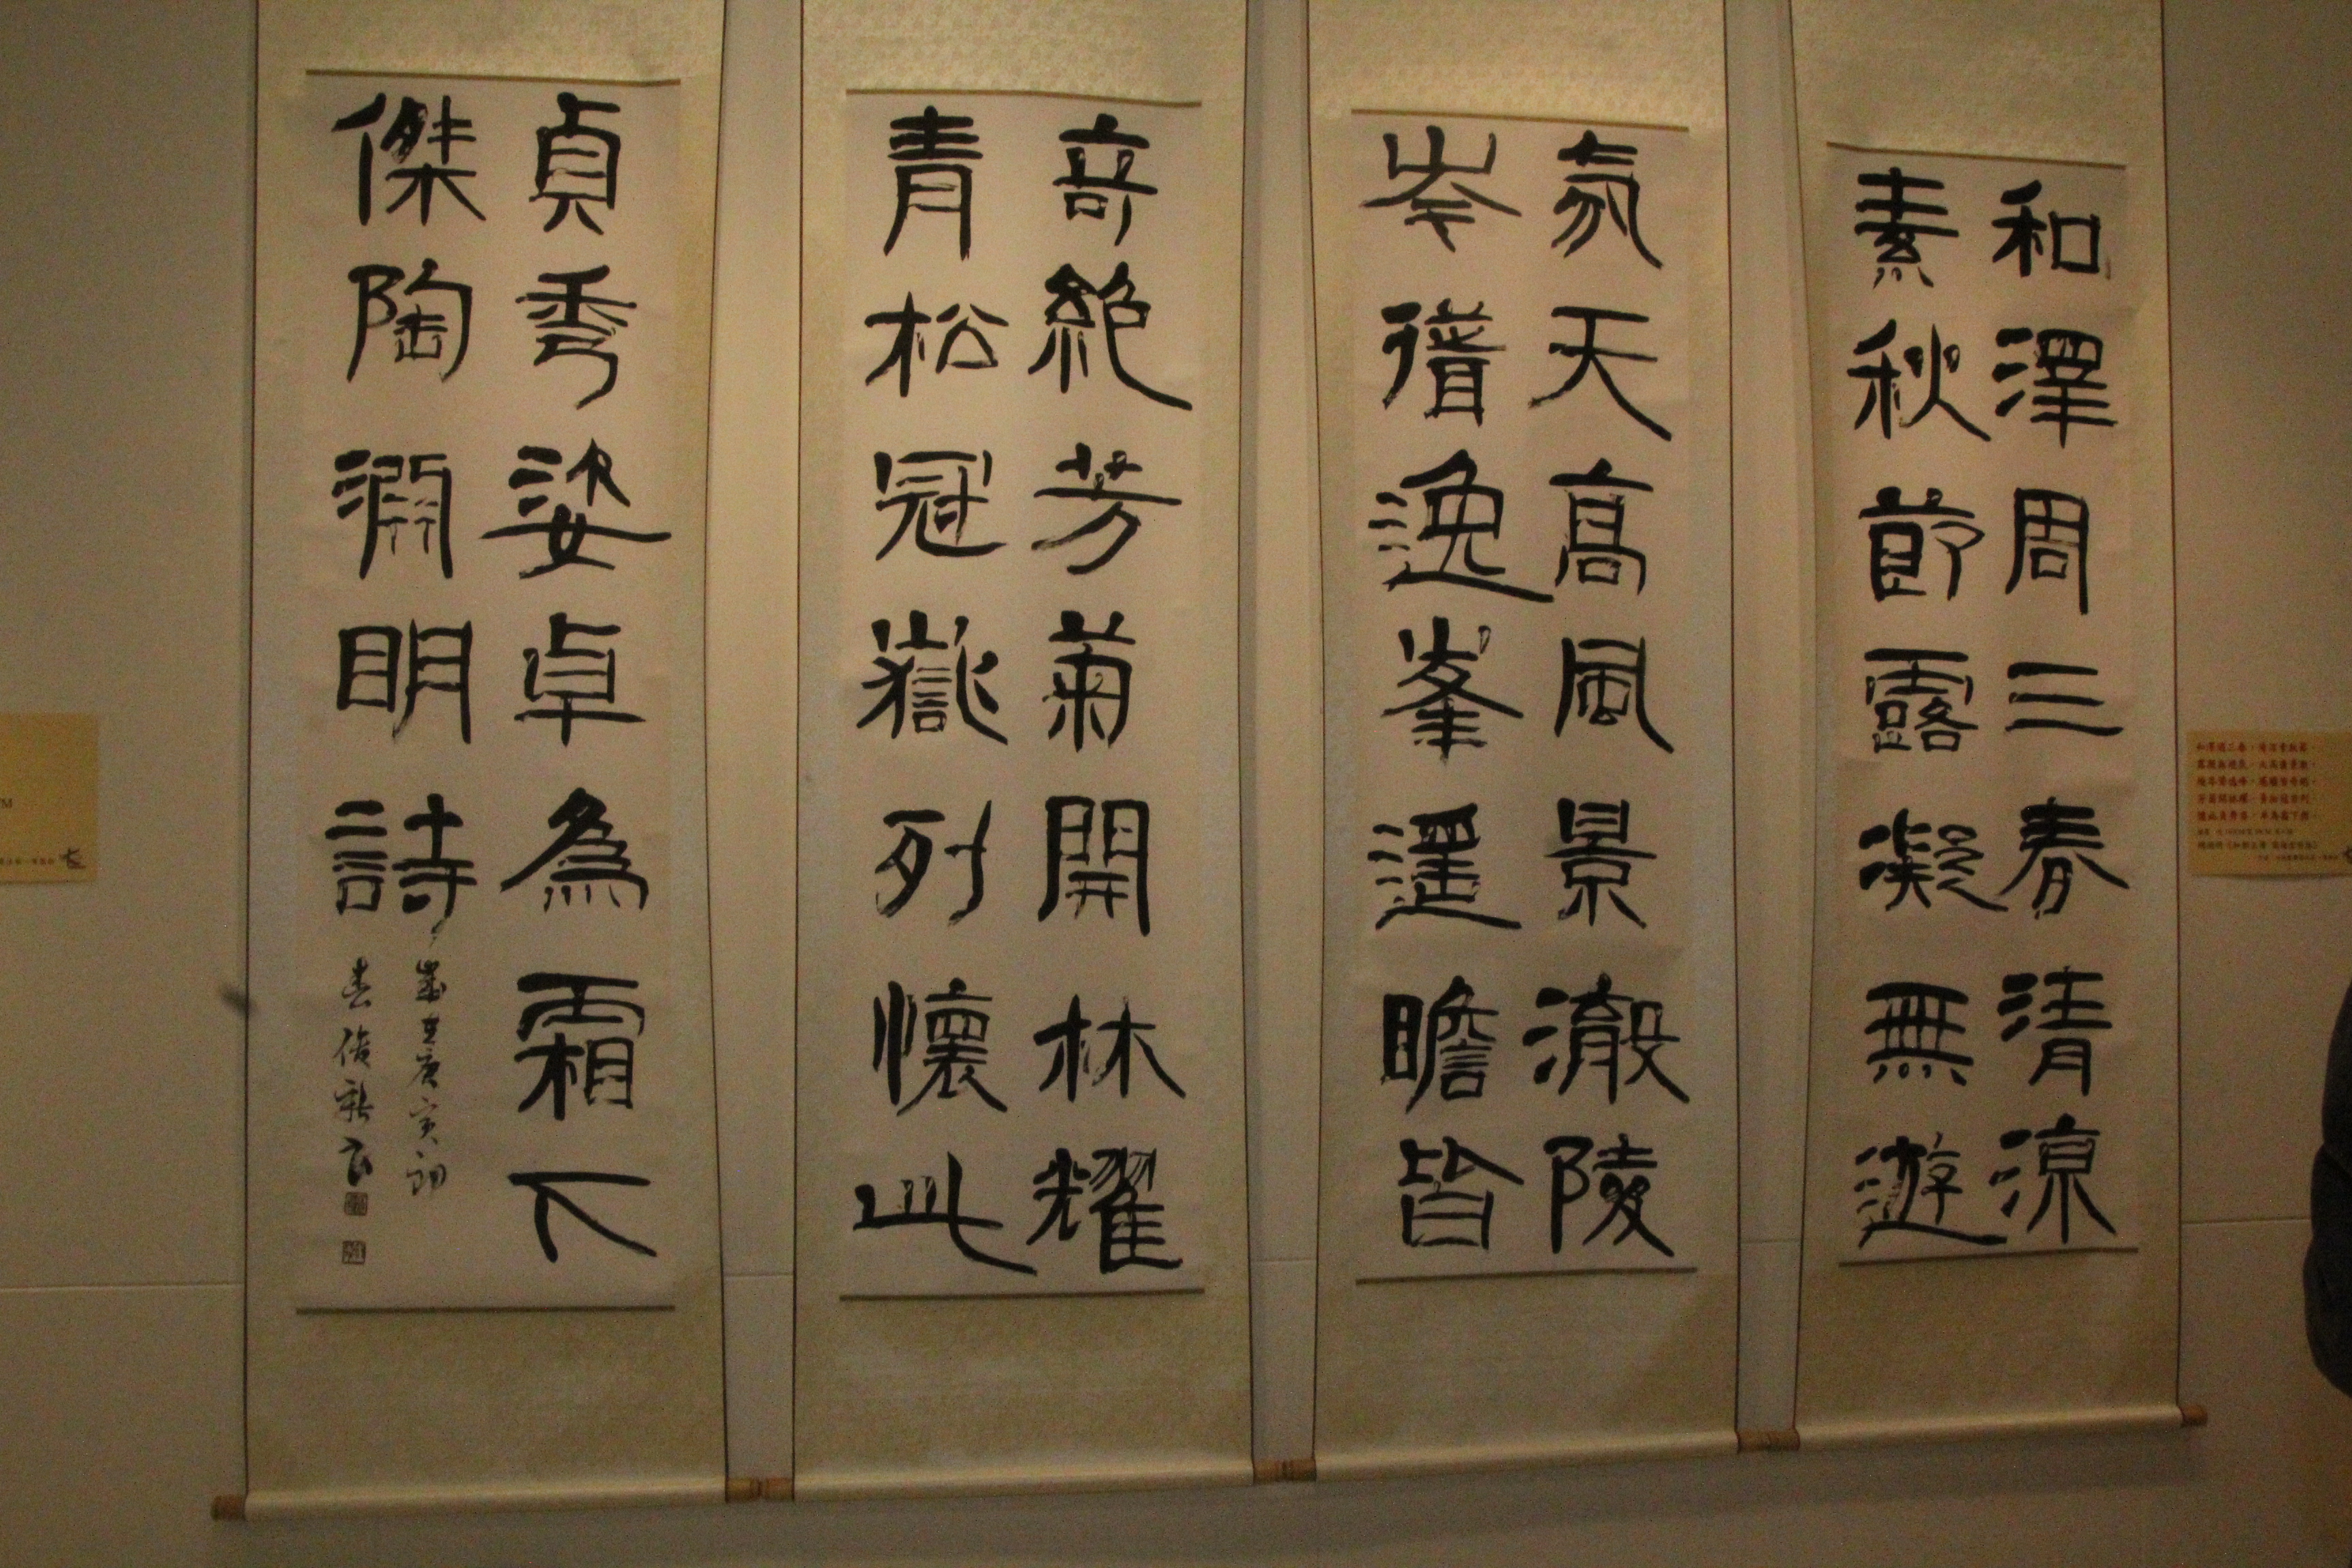 和澤周三春清涼
素秋節露凝無遊
氛天高風景澈陵
岑聳逸峯遥瞻皆
奇絕芳菊開林耀
青松冠嶽列懷此
貞秀姿卓為霜下
傑陶淵明詩
歲在庚寅初
春